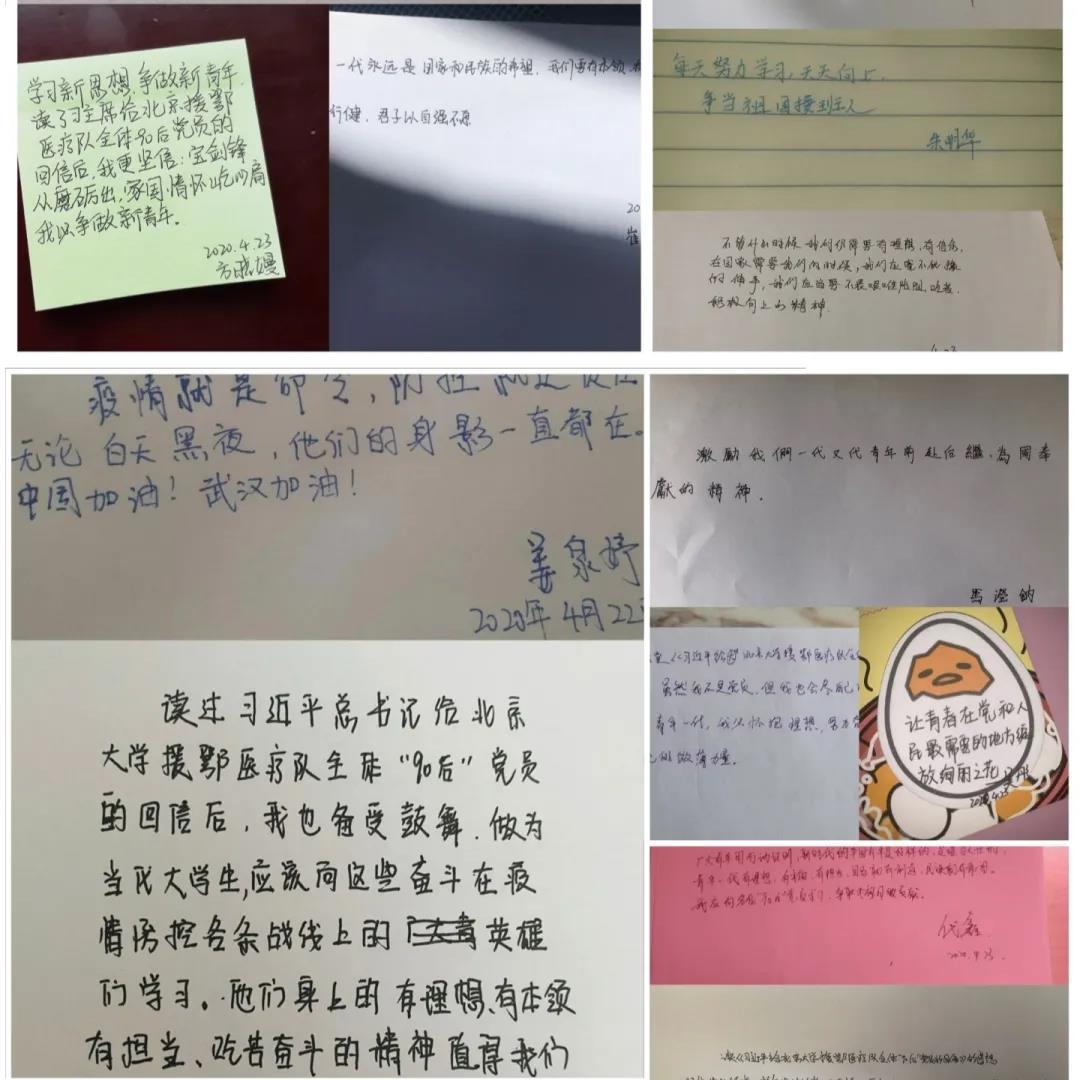 学习新思想,争做新青年.
读了习主席给北京援鄂
医疗队全体90后党员的
回信后,我更坚信:宝剑锋
从磨砺出,家国情怀
我以争做新青年.
2020.4.23
一代永远是国家和民族的希望.我们要有本领,
行健,君子以自强不息
20
崔
每天努力学习,天天向上.
争当祖国接班人
朱明华
不管什么时候 我们仍需要有理想,有信念,
在国家需要我们的时候,我们应
积极向上的精神.
疫情就是命令,防控就是责任
无论白天黑夜,他们的身影一直都在。
中国加油!武汉加油!
姜泉婷
2020年4月22
读过习近平总书记给北京
大学援鄂医疗队全体“90后”党员
的回信后,我也备受鼓舞.做为
当代大学生,应该向这些奋斗在疫
情防控各条战线上的 英雄
们学习。他们身上的有理想、有本领
有担当、吃苦奋斗的精神值得我们
激励我們一代又代青年前赴后繼、為國奉
獻的精神.
馬瀅鈉
《习近平给 北京大学援鄂医疗队
虽然我不是党员,但我也会尽自己
青年一代,我以怀抱理想,努力
微薄力量。
让青春在党和人
民最需要的地方绽
放绚丽之花
广大青年用行动证明,新时代的中国青年是好样的,是堪当大任的!
青年一代有理想、有本领、有担当,国家就有前途,民族就有希望。
代鑫
2020.4.23